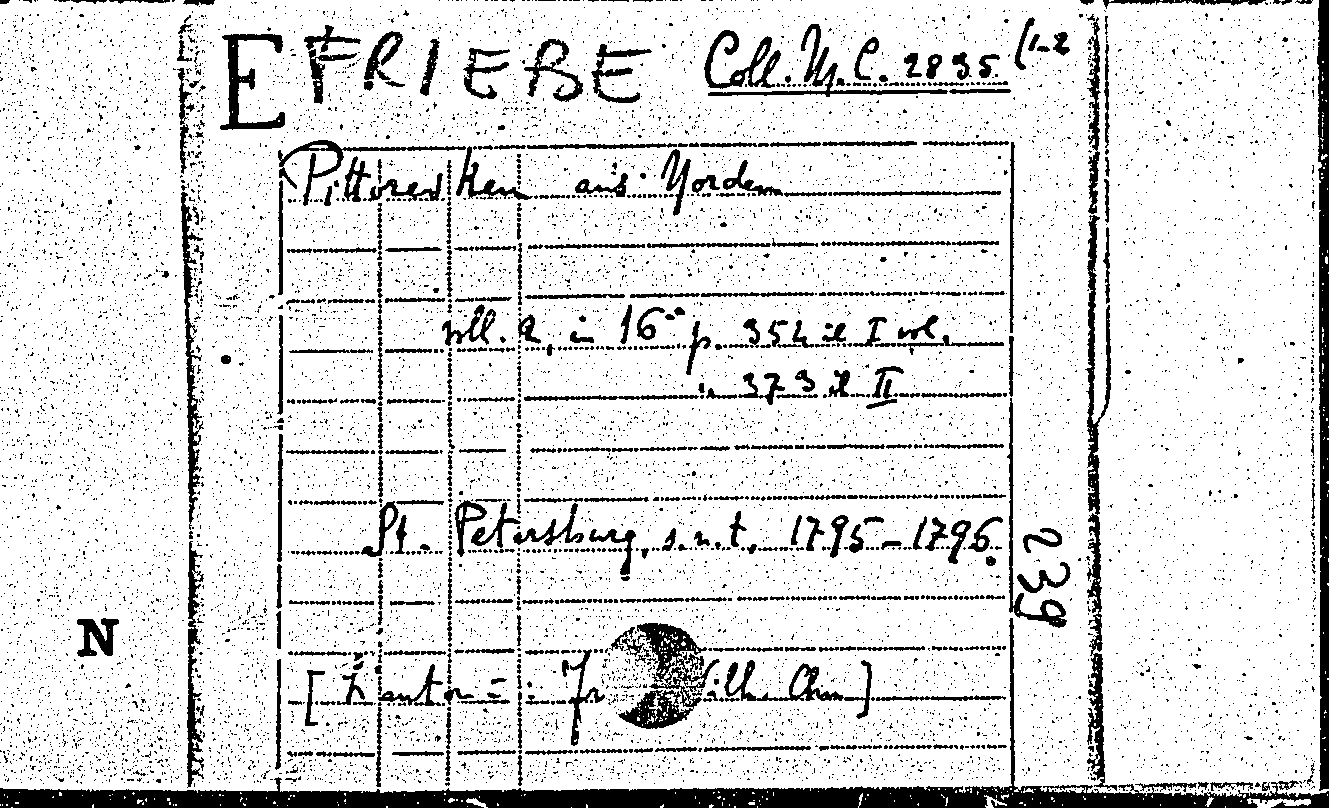 E FRIEBE Coll. M. C. 2835 (1-2
Pittoresken aus Norden
voll. 2, in 16° p. 354 il I vol.
" 373 il II
St. Petersburg, s.n.t. 1795-1796.
239
N
[L'autore: Fr Wilh. Chm]